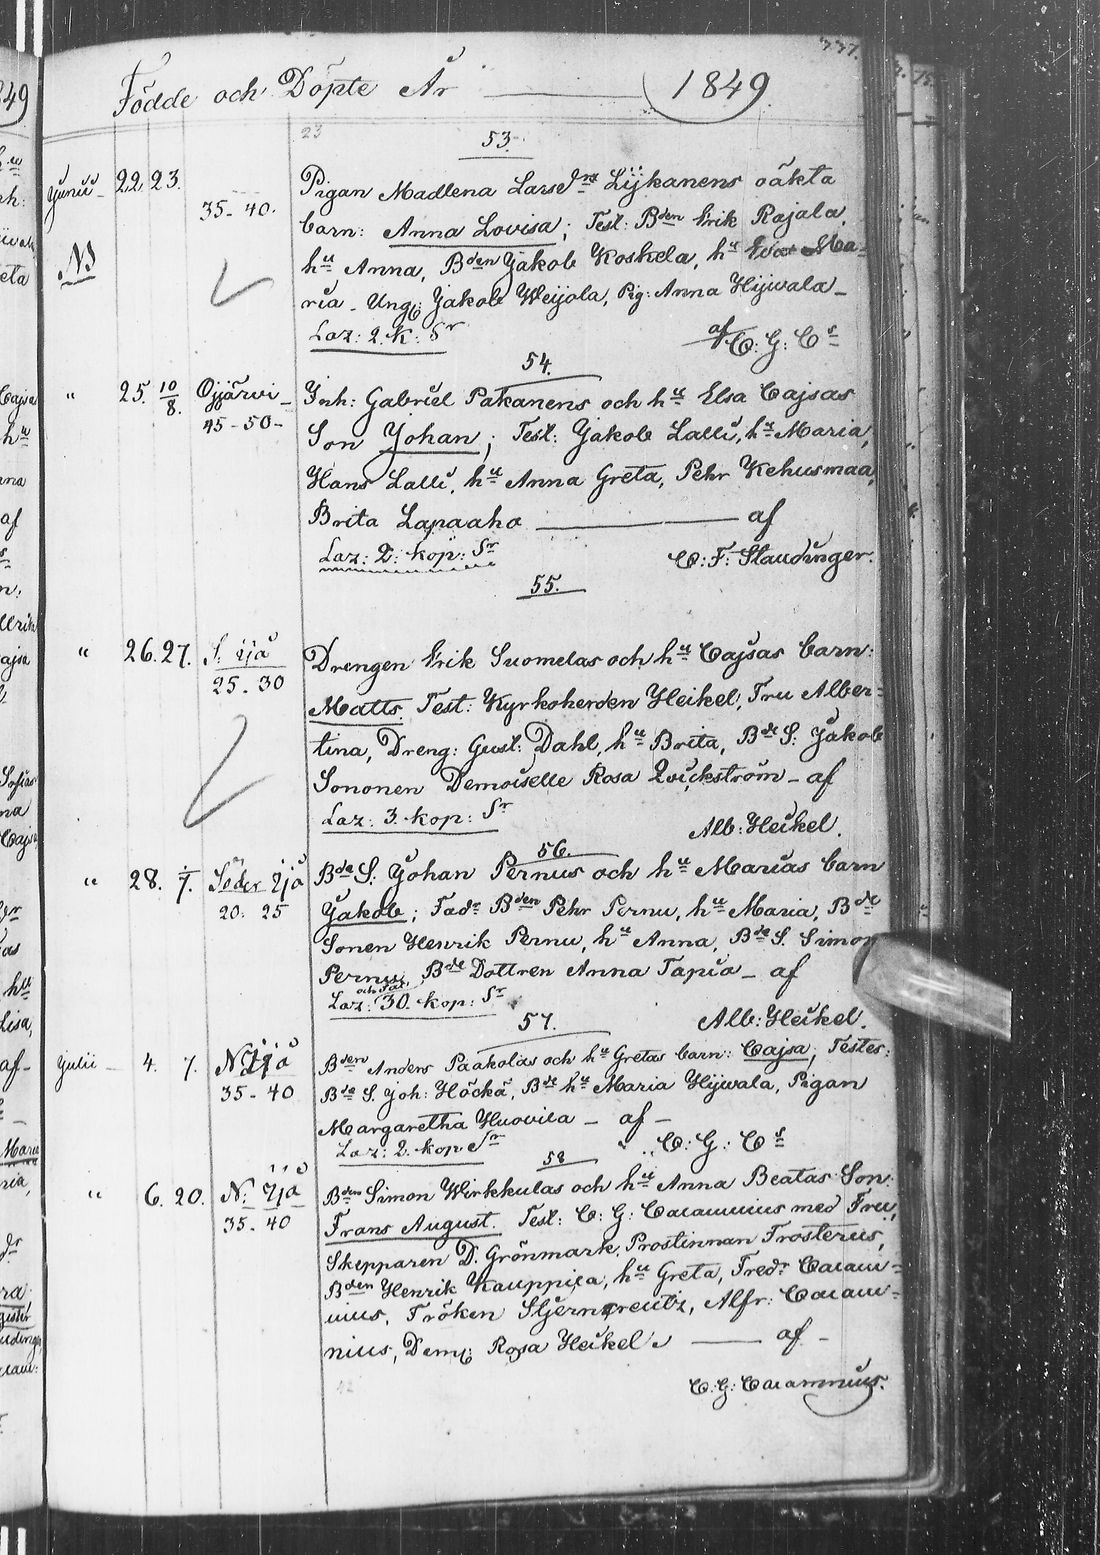 337.
Födde och Döpte År 1849
23
53.
Junii 22 23. Pigan Madlena Larsdrs Lijkanens oäkta
35-40. barn: Anna Lovisa; Test: Bden Erik Rajala,
NB hu Anna, Bden Jakob Koskela, hu Eva Ma-
ria - Ung: Jakob Weijola, Pig: Anna Hijwala -
Laz: 2. K: Sr af C: G: Cs
54.
" 25. 10/8. Oijärvi Inh: Gabriel Pakanens och hu Elsa Cajsas
45-50- Son Johan; Test: Jakob Lalli, hu Maria,
Hans Lalli, hu Anna Greta, Pehr Kehusmaa,
Brita Lapaaho ——— af
Laz: 2. kop: Sr C: F: Staudinger.
55.
" 26. 27. S: Ijå Drengen Erik Suomelas och hu Cajsas barn:
25-30 Matts. Test: Kyrkoherden Heikel, Fru Alber-
tina, Dreng: Gust: Dahl, hu Brita, Bde S: Jakob
Sononen Demoiselle Rosa Qvickström - af
Laz: 3. kop: Sr
Alb: Heikel.
56.
" 28. 1/7. Söder Ijå Bde S: Johan Pernus och hu Marias barn
20: 25 Jakob; Fadr Bden Pehr Pernu, hu Maria, Bde
Sonen Henrik Pernu, hu Anna, Bde S. Simon
Pernu, Bde Dottren Anna Tapia - af
Laz: 30. kop: Sr
Alb: Heikel.
57.
Julii 4. 7. N. Ijå Bden Anders Paakolas och hu Gretas barn: Cajsa; Testes:
35-40 Bde S. Joh: Höckä, Bde hu Maria Hijwala, Pigan
Margaretha Huovila - af -
Laz: 2. kop Sr C: G: Cs
58
" 6. 20. N: Ijå Bden Simon Wirkkulas och hu Anna Beatas Son
35-40 Frans August. Test: C: G: Caiamnius med Fru,
Skepparen D. Grönmark, Prostinnan Frosterus,
Bden Henrik Kauppila, hu Greta, Fredr Caiam-
nius, Fröken Stjerncreutz, Alfr: Caiam-
nius, Dem: Rosa Heikel ——— af -
C: G: Caiamnius.